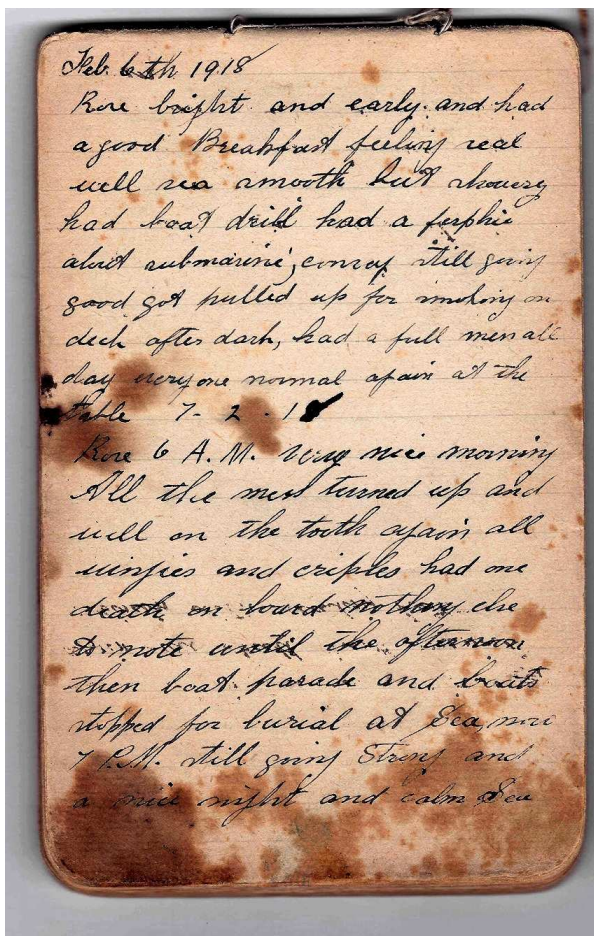 Feb 6th 1918
Rose bright and early and had
a good Breakfast feeling real
well sea smooth but showery
had boat drill had a
about submarine, convoy still going
good got pulled up for smoking on
deck after dark, had a full men all
day everyone normal again at the
table 7-2-18
Rose 6 A.M. very nice morning
All the mess turned up and
well on the tooth again all
and criples had one
death on board nothing else
to note until the afternoon
then boat parade and boats
stopped for burial at Sea, now
7 P.M. still going Strong and
a nice night and calm Sea